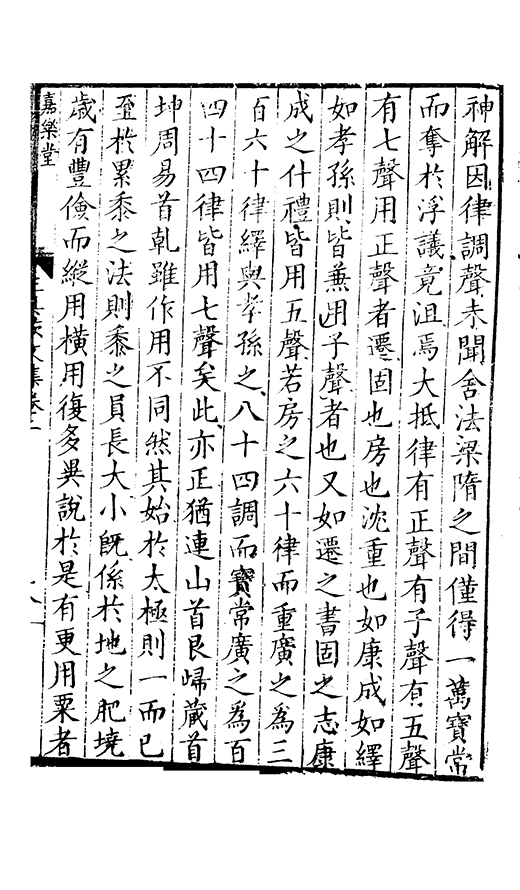 神解因律調聲未聞舍法梁隋之間僅得一萬寶常
而奪於浮議竟沮焉大抵律有正聲有子聲有五聲
有七聲用正聲者遷固也房也沈重也如康成如繹
如孝孫則皆兼用子聲者也又如遷之書固之志康
成之什禮皆用五聲若房之六十律而重廣之為三
百六十律繹與孝孫之八十四調而寶常廣之為百
四十四律皆用七聲矣此亦正猶連山首艮歸藏首
坤周易首乹雖作用不同然其始於太極則一而已
至於累黍之法則黍之員長大小既係於地之肥境
歲有豐儉而縱用橫用復多異說於是有更用粟者
嘉樂堂
文集卷